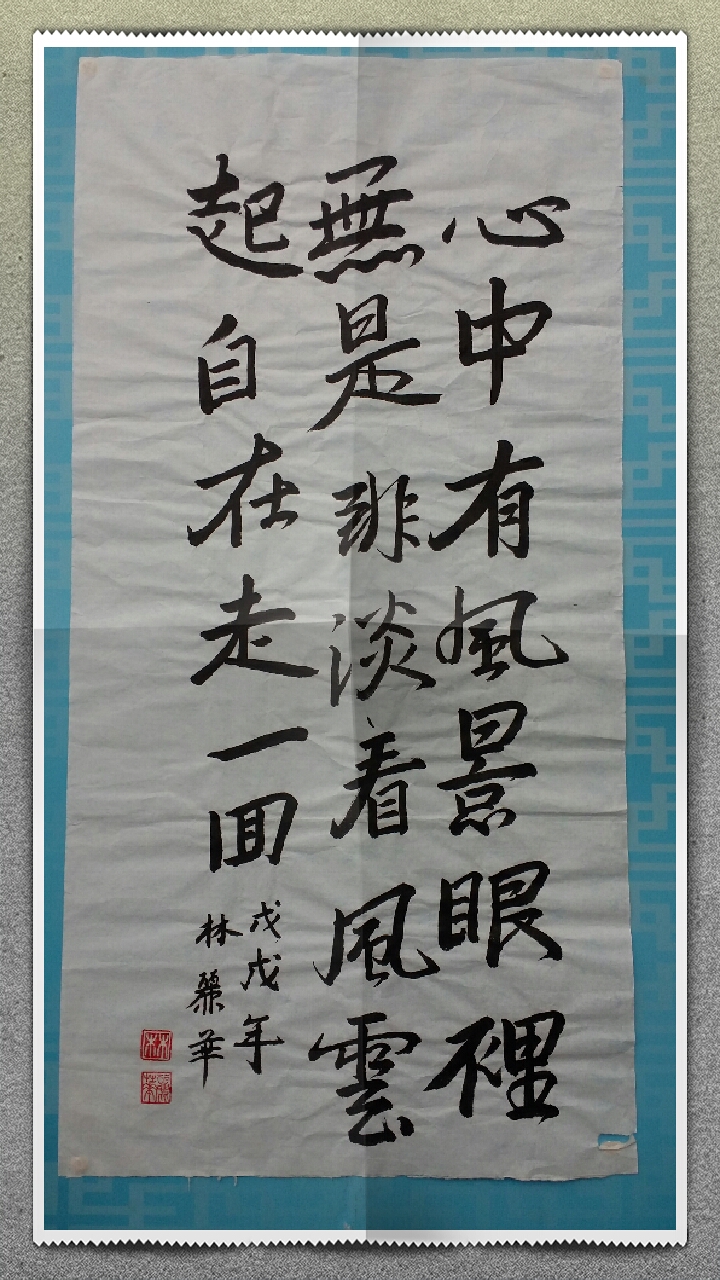 心中有風景眼裡
無是非淡看風雲
起自在走一回
戊戌年
林麗華